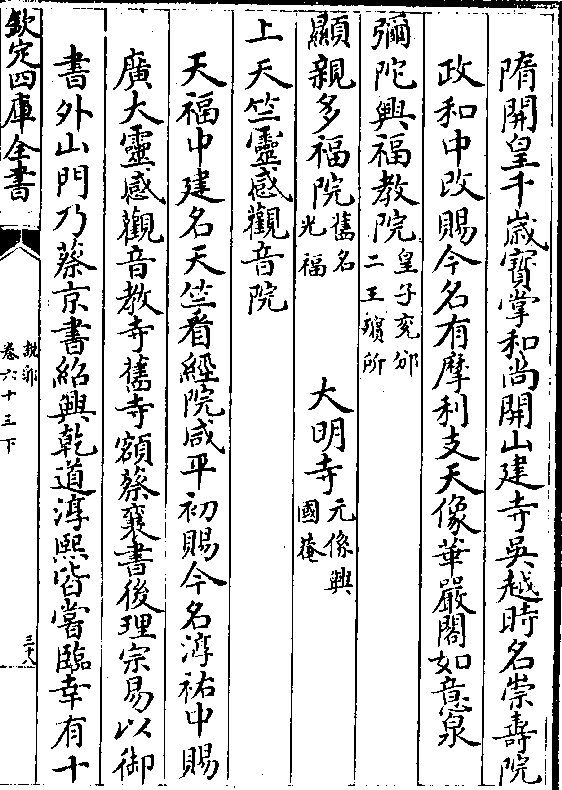 隋開皇千歲寶掌和尚開山建寺吳越時名崇壽院
政和中改賜今名有摩利支天像華嚴閣如意泉
彌陀興福教院皇子兖邠二王殯所
顯親多福院舊名光福 大明寺元像興國菴
上天竺靈感觀音院
天福中建名天竺看經院咸平初賜今名淳祐中賜
廣大靈感觀音教寺舊寺額蔡襄書後理宗易以御
書外山門乃蔡京書紹興乾道淳熙皆嘗臨幸有十
欽定四庫全書
說郛
卷六十三下
三十八